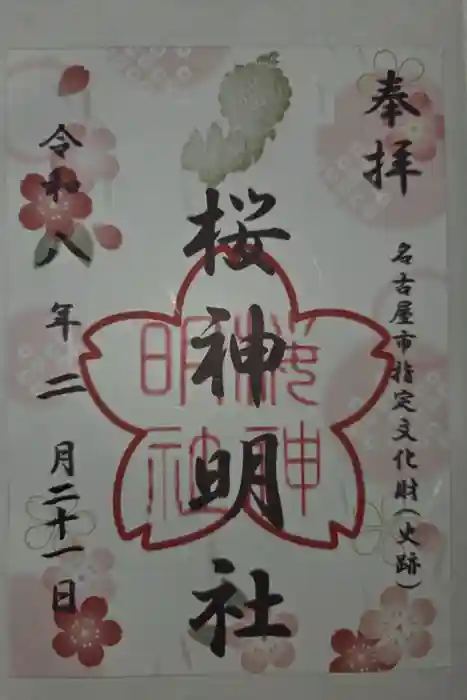 奉拝
名古屋市指定文化財(史跡)
桜神明社
桜神
明社
令和八年二月二十一日